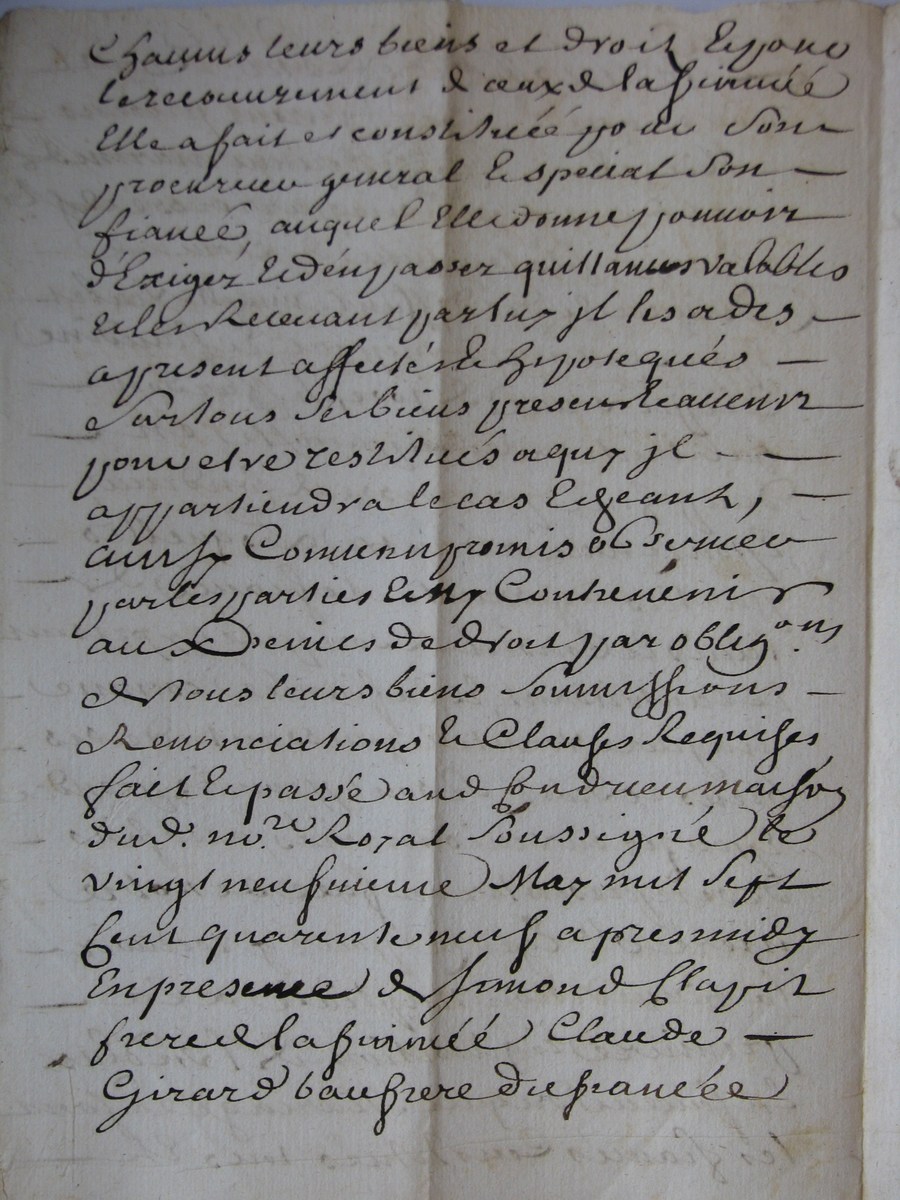 Chacuns leurs biens et droit Et pour
le recouvrement de ceux de la fiancéé
Elle a fait et constituéé pour Son
procureur general Et special Son
fiancé, auquel Elle donne pouvoir
d'Exiger Et d'en passer quittances valables
Et les Recevant par luy jl les a dés
a present affectés Et hypotequés
Sur tous Ses biens presens Et avenir
pour etre restitués a quy jl
appartiendra le cas Echeant,
ainsy Convenu promis observer
par les parties Et ny Contrevenir
aux Peines de droit par oblig.ons
de tous leurs biens Soumissions
Renonciations Et Clauses Requises
fait Et passé aud maison
dud. no.re Royal Soussigné le
vingt neufvieme May mil Sept
Cent quarente neuf apres midy
En presence de Simond Clapit
frere de la fiancéé Claude
Girard baufrere du fiancée